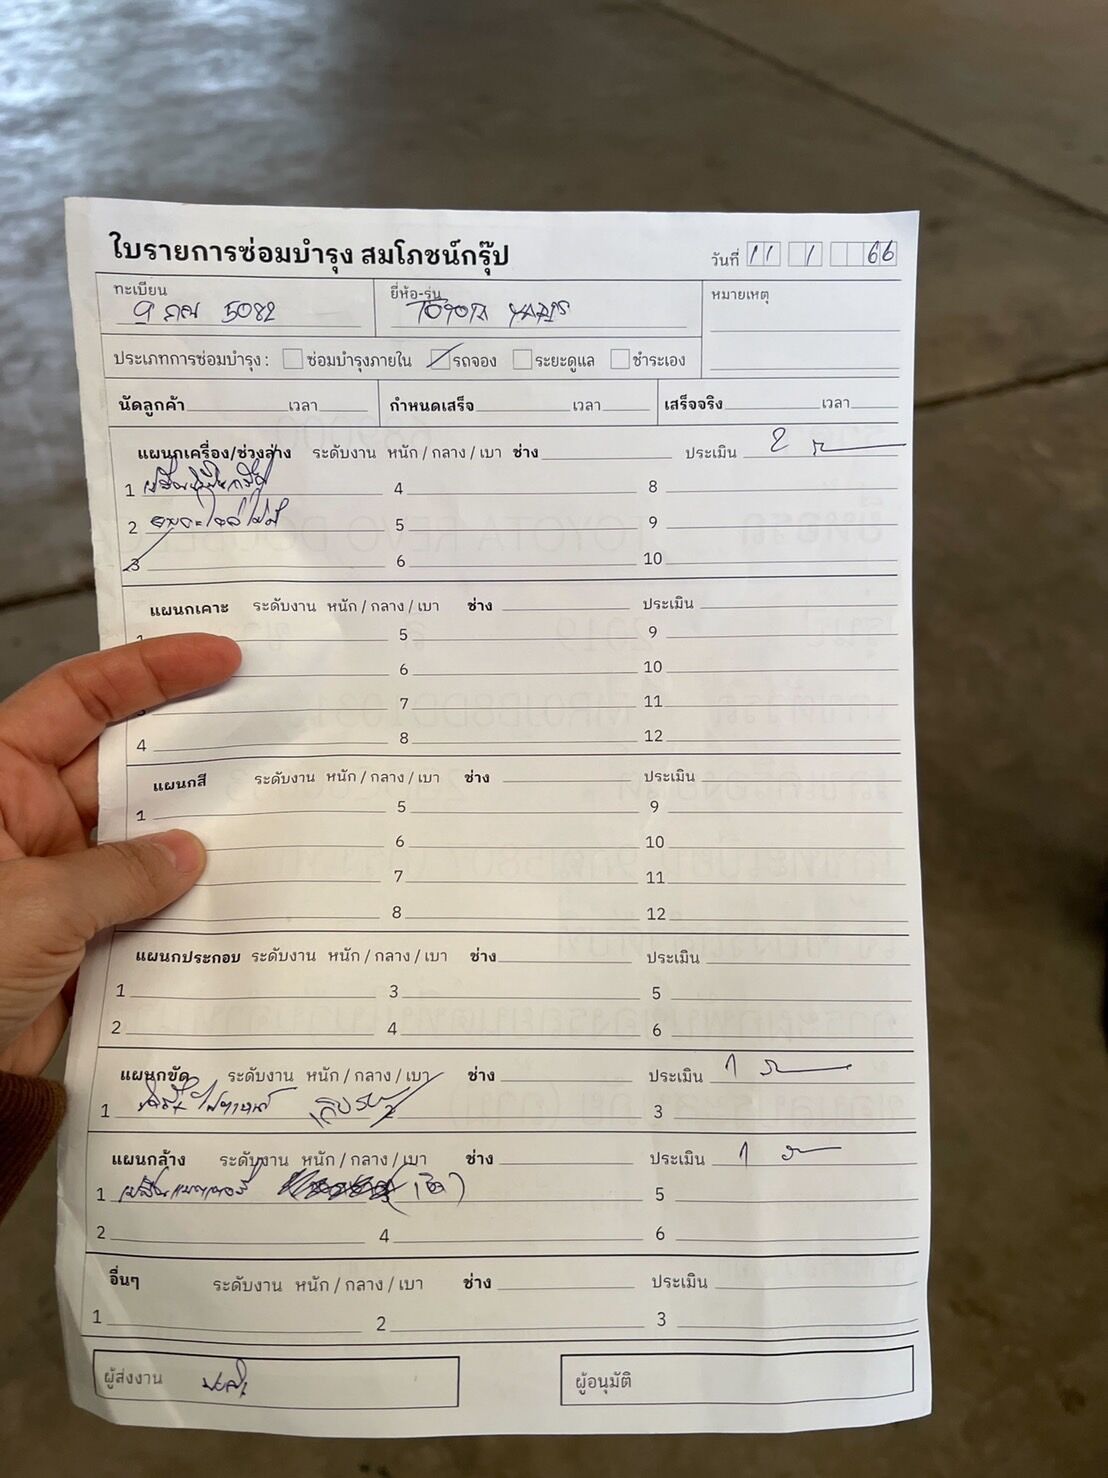 ใบรายการซ่อมบำรุง สมโภชน์กรุ๊ป
วันที่ 11 1 66
ทะเบียน ยี่ห้อ-รุ่น หมายเหตุ
9 5082 TOYOTA YARIS
ประเภทการซ่อมบำรุง : ซ่อมบำรุงภายใน รถจอง ระยะดูแล ชำระเอง
นัดลูกค้า เวลา กำหนดเสร็จ เวลา เสร็จจริง เวลา
แผนกเครื่อง/ช่วงล่าง ระดับงาน หนัก / กลาง / เบา ช่าง ประเมิน 2
1 4 8
2 5 9
3 6 10
แผนกเคาะ ระดับงาน หนัก / กลาง / เบา ช่าง ประเมิน
5 9
6 10
7 11
4 8 12
แผนกสี ระดับงาน หนัก / กลาง / เบา ช่าง ประเมิน
1 5 9
6 10
7 11
8 12
แผนกประกอบ ระดับงาน หนัก / กลาง / เบา ช่าง ประเมิน
1 3 5
2 4 6
แผนกขัด ระดับงาน หนัก / กลาง / เบา ช่าง ประเมิน 1
1 2 3
แผนกล้าง ระดับงาน หนัก / กลาง / เบา ช่าง ประเมิน 1
1 5
2 4 6
อื่นๆ ระดับงาน หนัก / กลาง / เบา ช่าง ประเมิน
1 2 3
ผู้ส่งงาน ผู้อนุมัติ